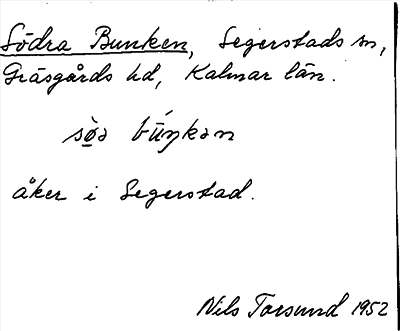 Södra Bunken, Segerstads sn,
Gräsgårds hd, Kalmar län.
åker i Segerstad.
Nils Torsund 1952